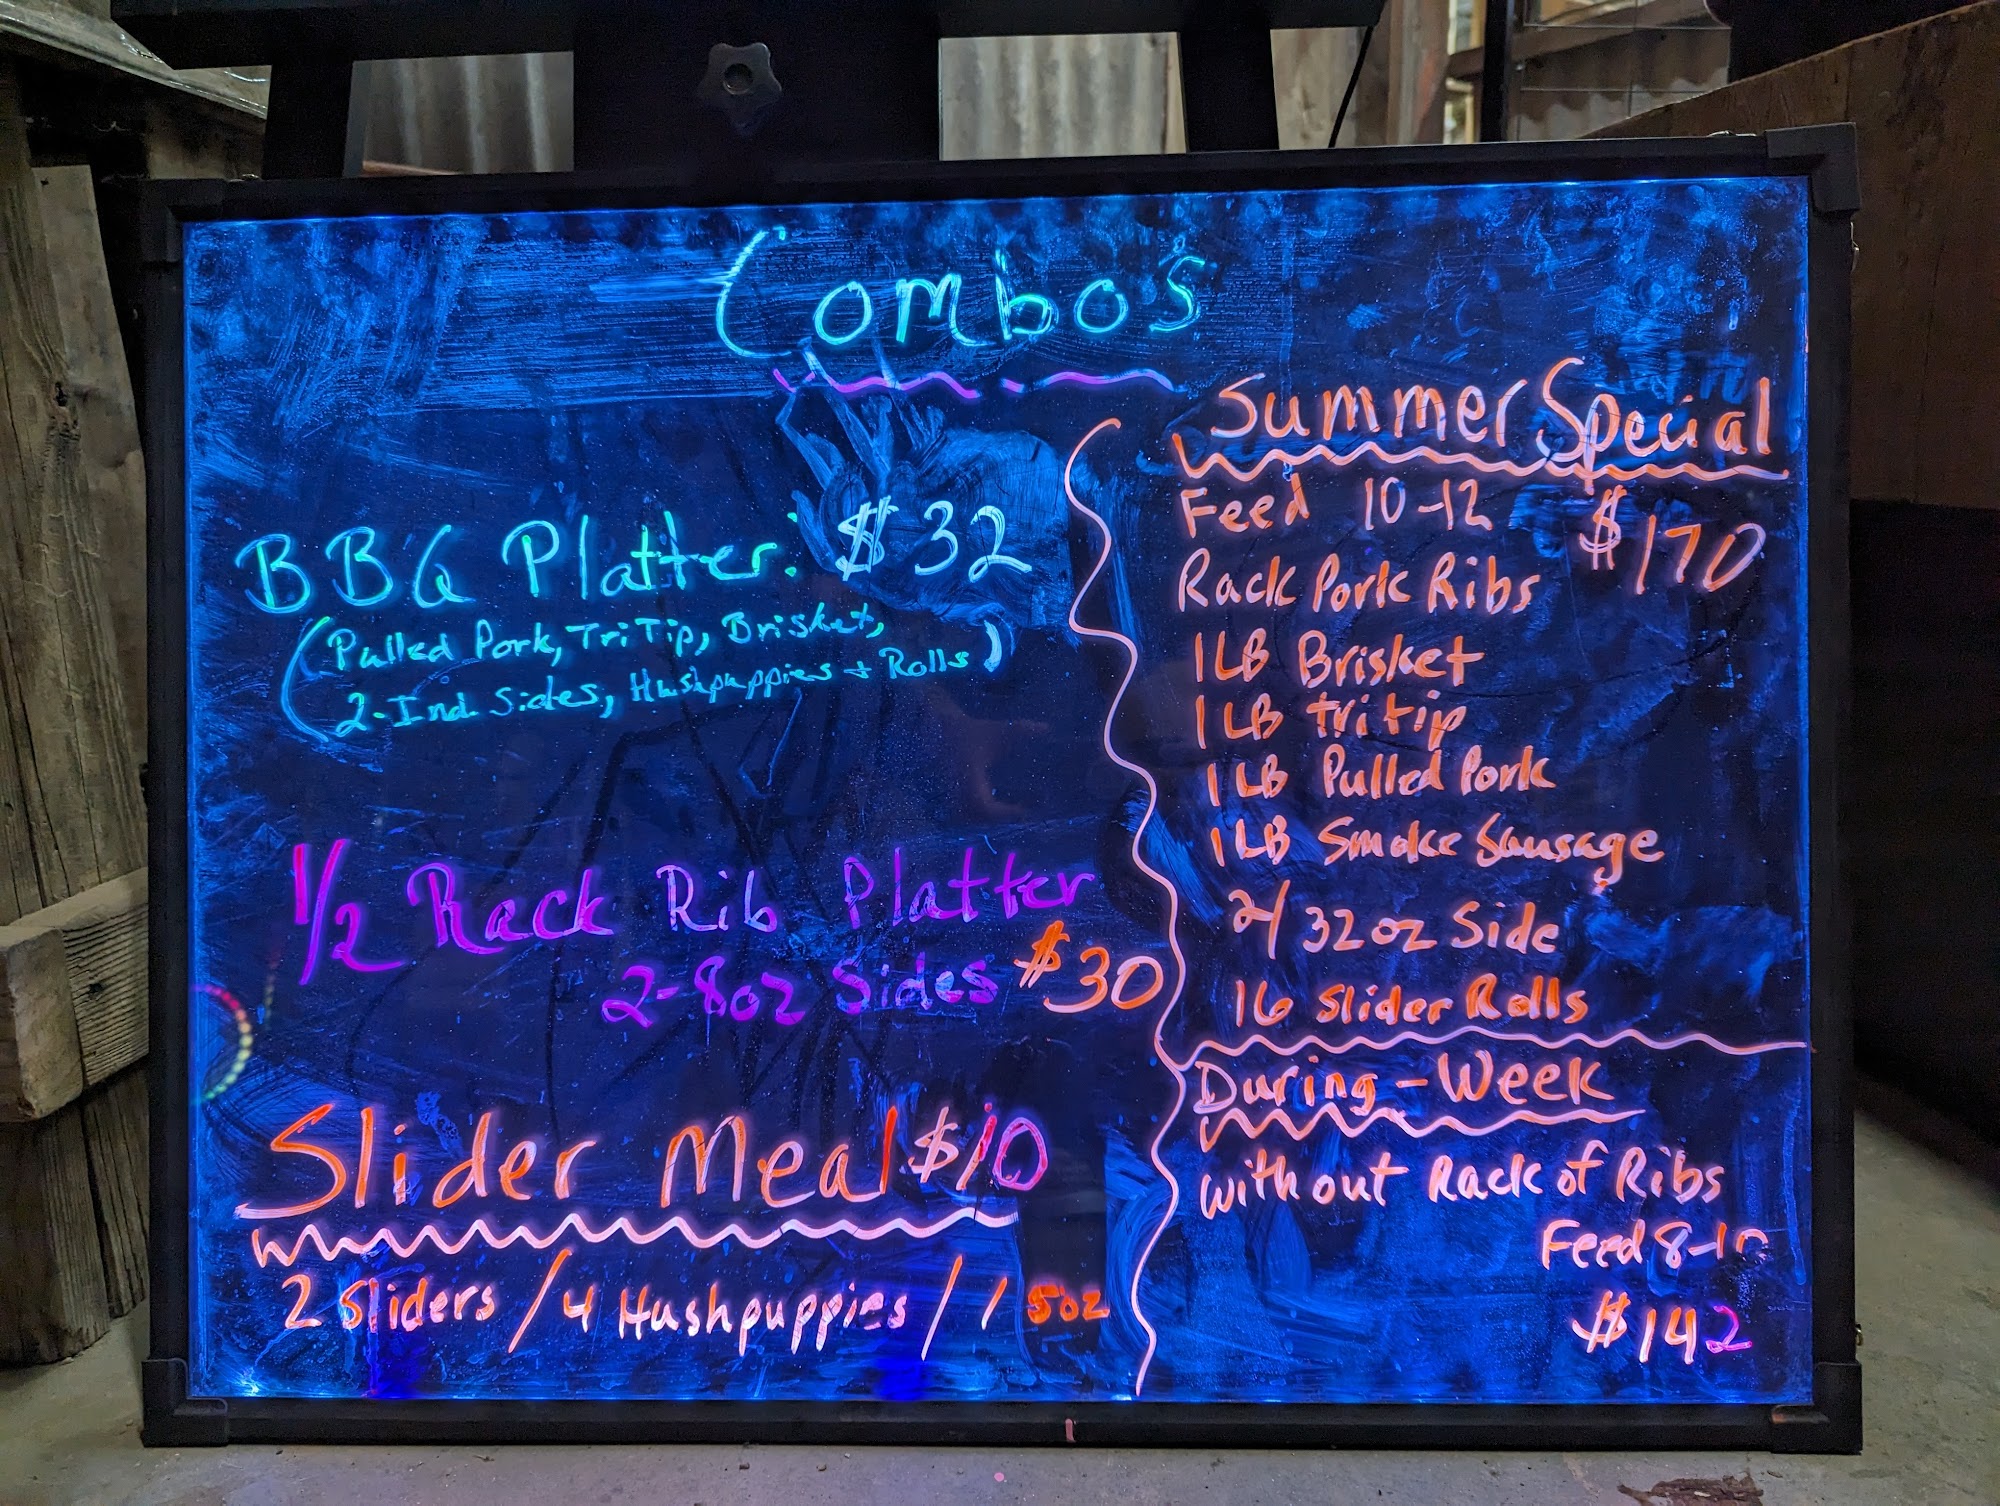 Combo's
BBQ Platter: $32
(Pulled Pork, Tri Tip, Brisket,
2-Ind. Sides, Hushpuppies + Rolls)
1/2 Rack Rib Platter
2-8oz Sides $30
Slider Meal $10
2 Sliders / 4 Hushpuppies / 1 5oz
Summer Special
Feed 10-12 $170
Rack Pork Ribs
1 LB Brisket
1 LB tri tip
1 LB Pulled Pork
1 LB Smoke Sausage
2/ 32oz Side
16 Slider Rolls
During-Week
without Rack of Ribs
Feed 8-10
$142